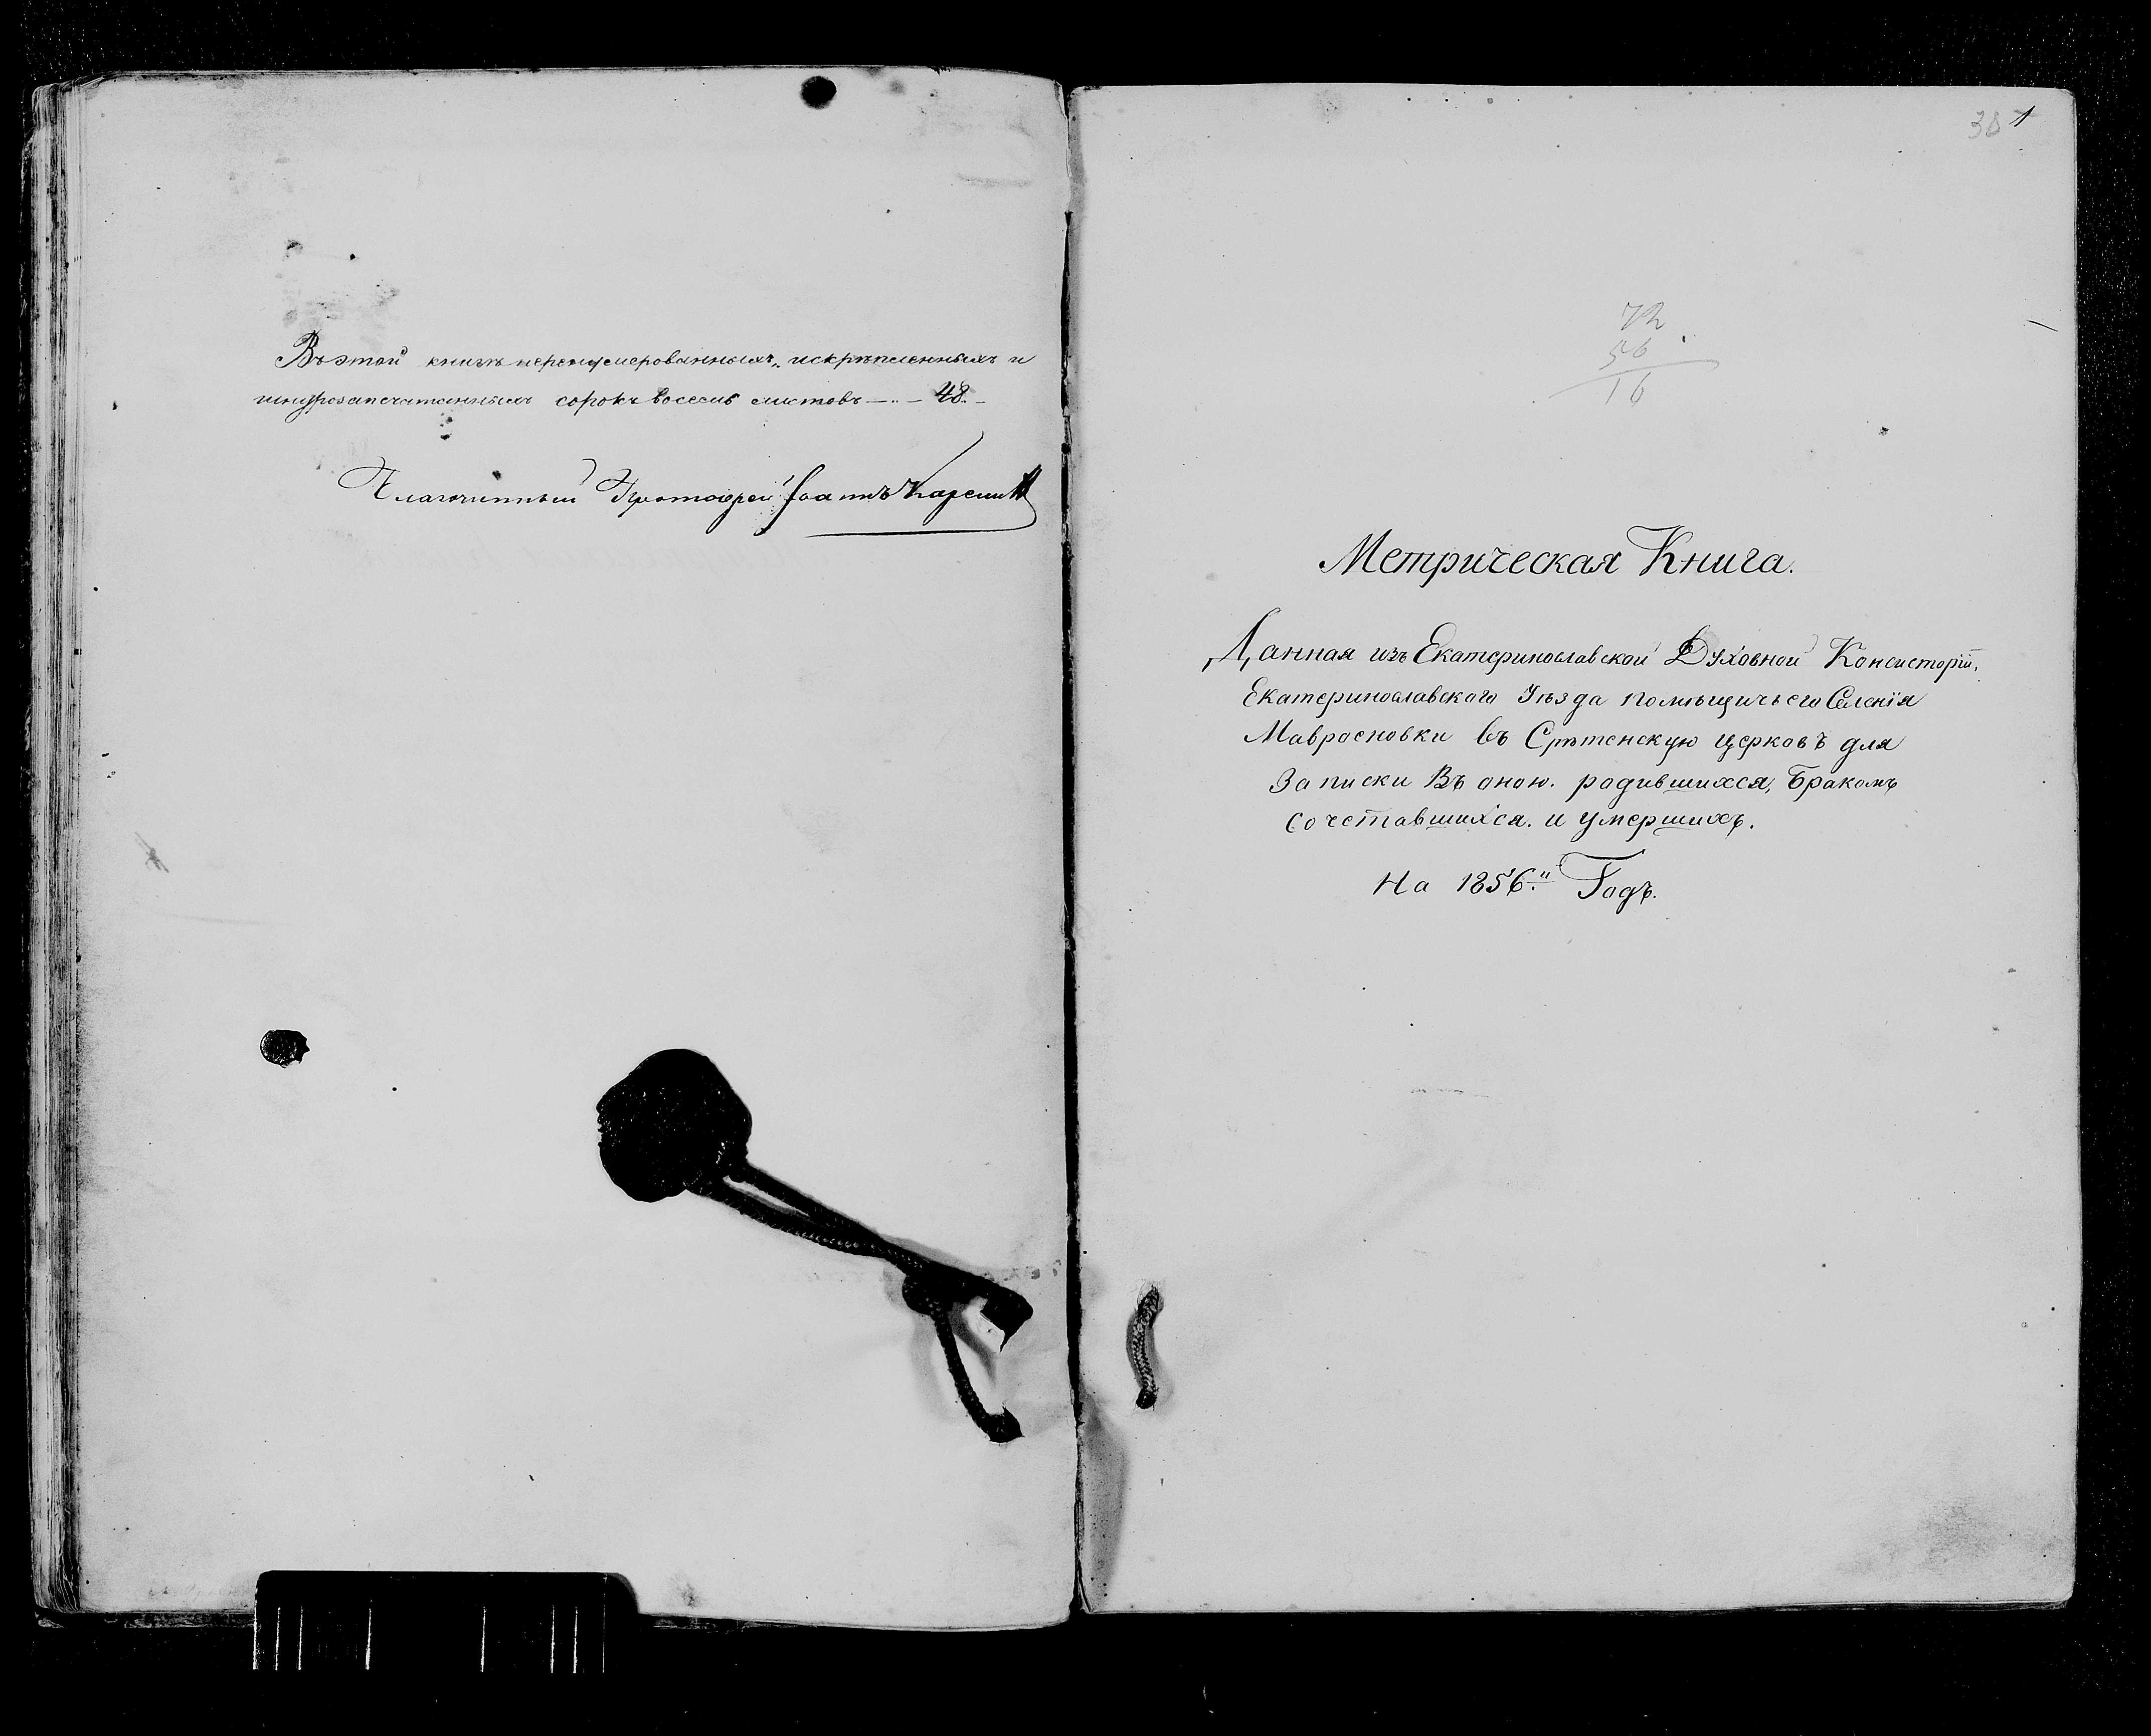 Въ этой книгѣ перенумерованныхъ, искрѣпленныхъ и
шнурозапечатанныхъ сорокъ восемь листовъ —..— 48.—
Благочинный Протоіерей Іоаннъ
1
72
56
16
Метрическая Книга.
Данная изъ Екатеринославской Духовной Консисторіи,
Екатеринославского Уѣзда помѣщичьего Селенія
Мавроеновки въ Срѣтенскую Церковъ для
Записки Въ оною. родившихся, Бракомъ
Сочетавшихся. и Умершихъ.
На 1856.й Годъ.